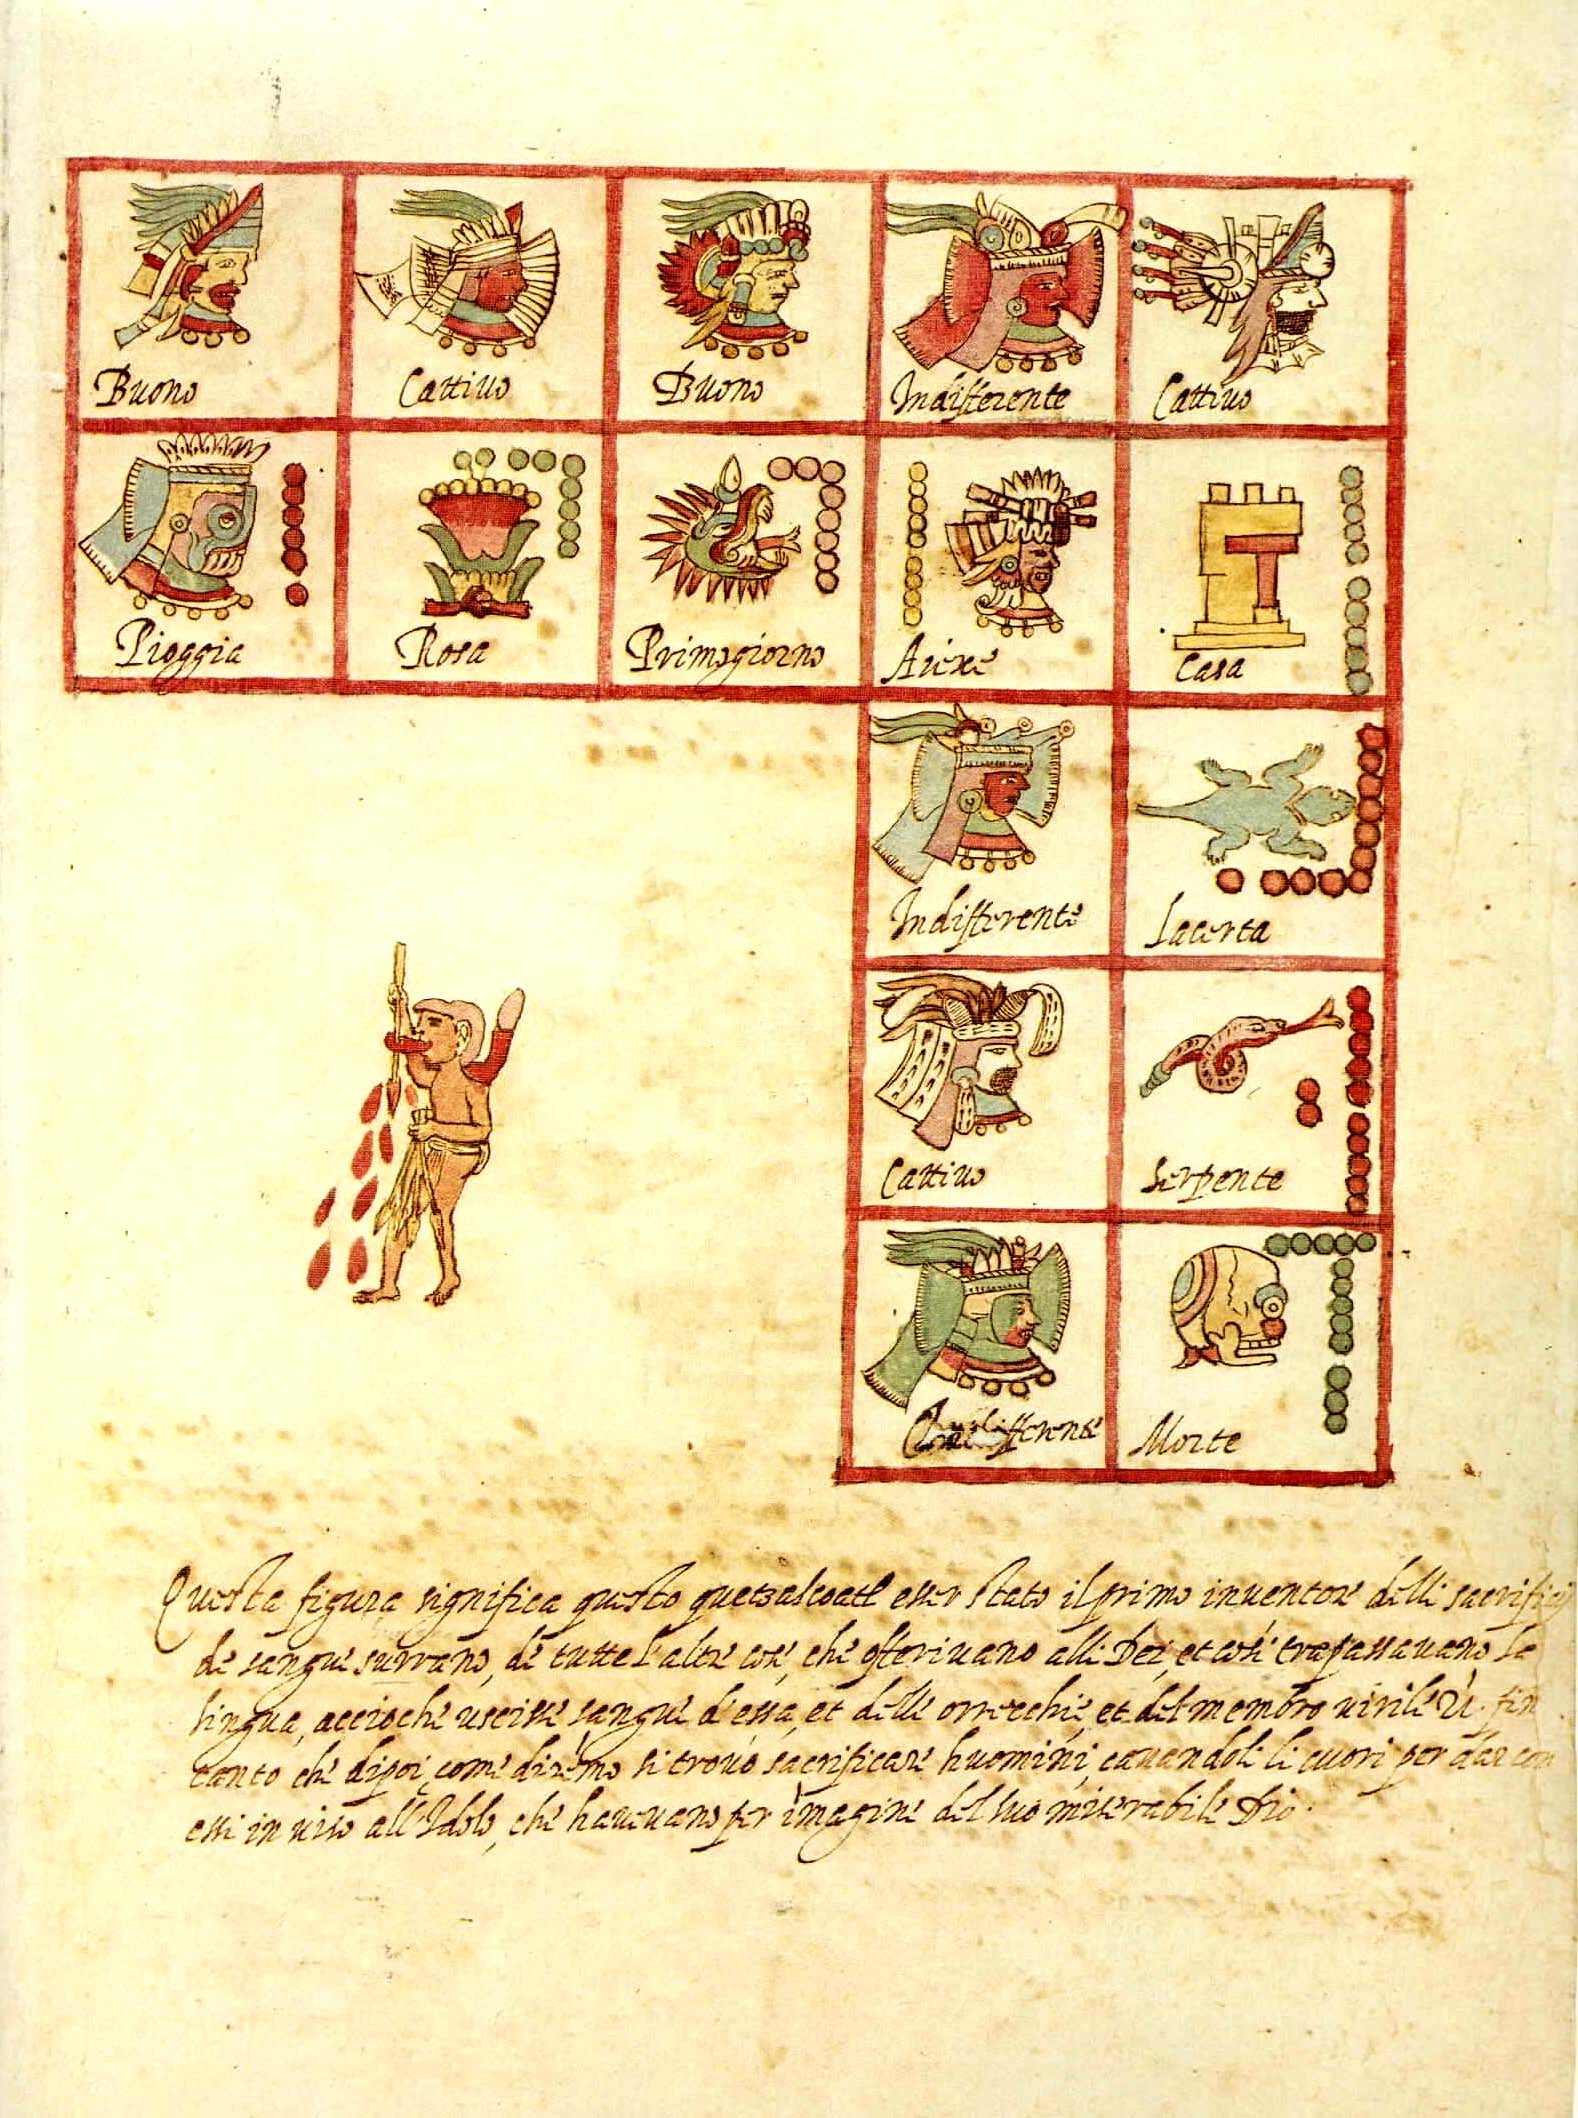 Buono Cattiuo Buono Indifferente Cattiuo
Pioggia Rosa Primogiorno Aiere Casa
Indifferente Lacerta
Cattiuo Serpente
Indifferente Morte
Questa figura significa questo quetzalcoatl esser stato il primo inuentore delli sacrificij
de sangue de tutte l'altre cose, che offeriuano alli Dei, et cosi trapassauano la
lingua, accioche uscisse sangue d'essa, et delle orrecchie, et del membro uirile fin
tanto che dipoi, come diremo si trouò sacrificare huomini, cauandoli li cuori per dar con
essi in uiso all'Idolo, che haueuano per imagine del suo miserabile Dio.